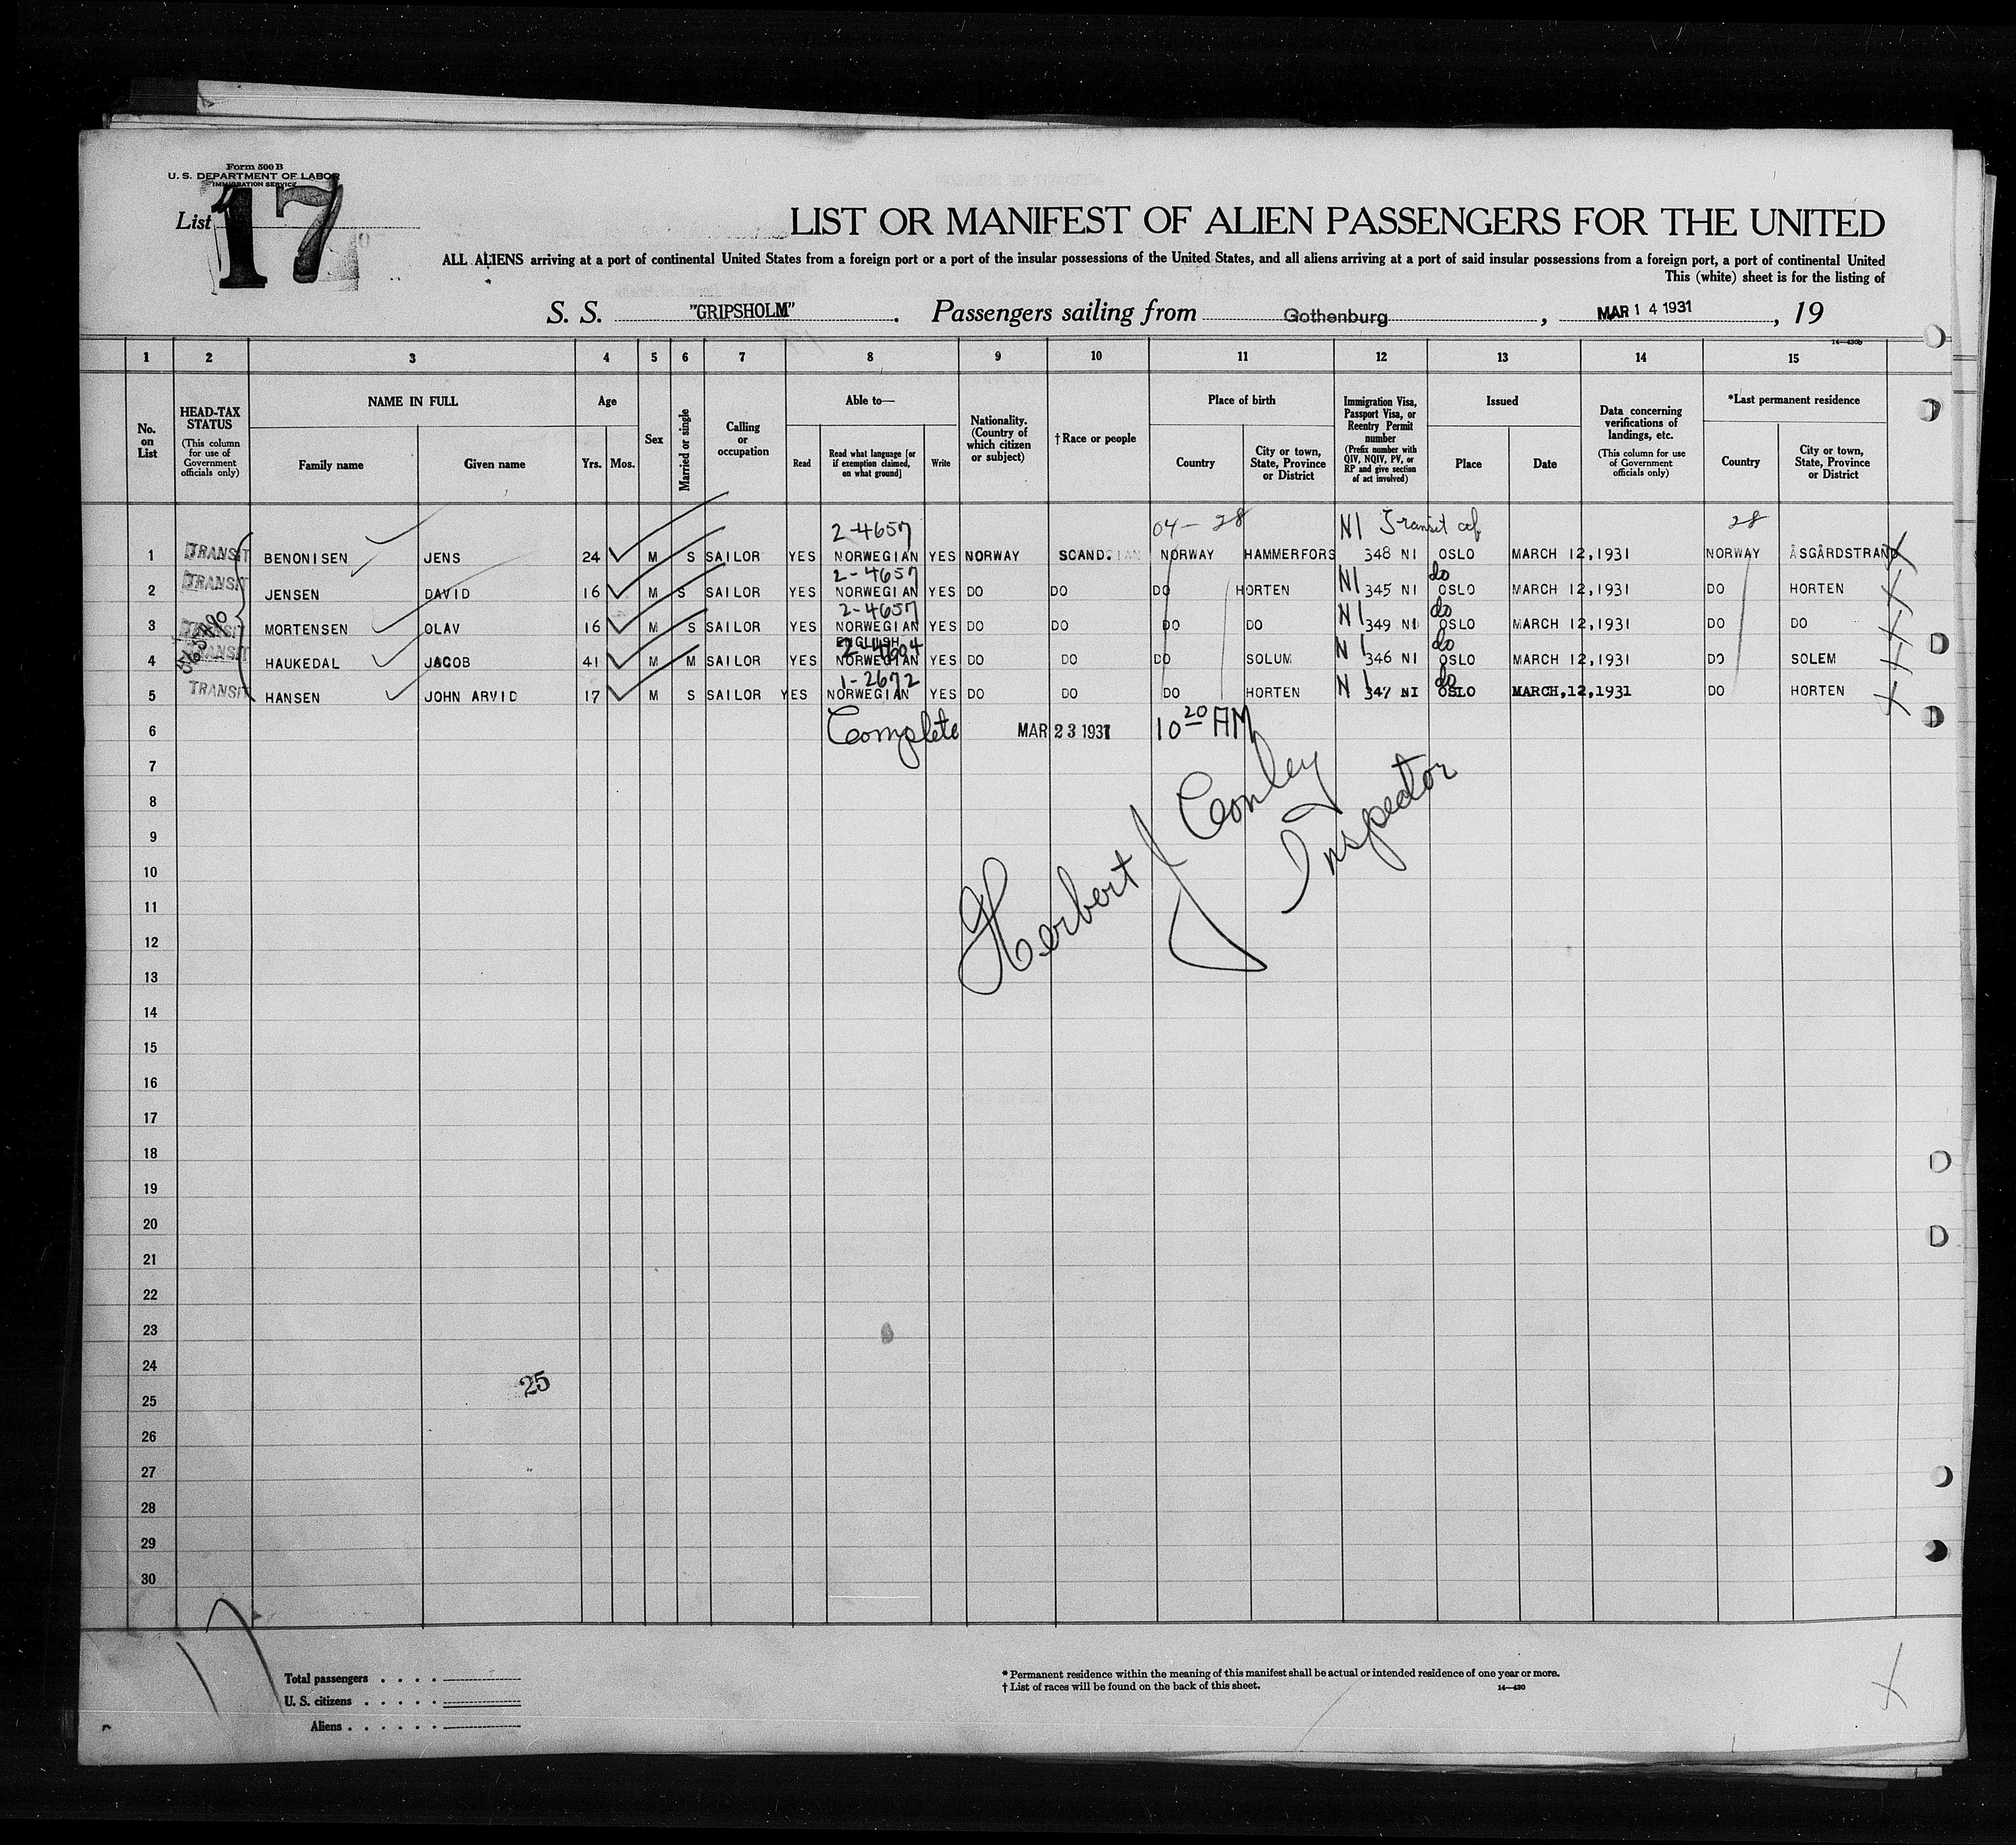 Form 500 B
U. S. DEPARTMENT OF LABOR
IMMIGRATION SERVICE
List 17
LIST OR MANIFEST OF ALIEN PASSENGERS FOR THE UNITED
ALL ALIENS arriving at a port of continental United States from a foreign port or a port of the insular possessions of the United States, and all aliens arriving at a port of said insular possessions from a foreign port, a port of continental United
This (white) sheet is for the listing of
S. S. "GRIPSHOLM". Passengers sailing from Gothenburg, MAR 14 1931, 19
14—430b
1 2 3 4 5 6 7 8 9 10 11 12 13 14 15
No. on List
HEAD-TAX STATUS (This column for use of Government officials only)
NAME IN FULL
Family name
Given name
Age
Yrs. Mos.
Sex
Married or single
Calling or occupation
Able to—
Read
Read what language [or if exemption claimed, on what ground]
Write
Nationality. (Country of which citizen or subject)
†Race or people
Place of birth
Country
City or town, State, Province or District
Immigration Visa, Passport Visa, or Reentry Permit number (Prefix number with QIV, NQIV, PV, or RP and give section of act involved)
Issued
Place
Date
Data concerning verifications of landings, etc. (This column for use of Government officials only)
*Last permanent residence
Country
City or town, State, Province or District
2-4657 04-28 NI Transit 28
1 TRANSIT BENONISEN JENS 24 M S SAILOR YES NORWEGIAN YES NORWAY SCAND. NORWAY HAMMERFORS 348 NI OSLO MARCH 12,1931 NORWAY ÅSGÅRDSTRAND
2-4657 NI do
2 TRANSIT JENSEN DAVID 16 M S SAILOR YES NORWEGIAN YES DO DO DO HORTEN 345 NI OSLO MARCH 12,1931 DO HORTEN
2-4657 NI do
3 TRANSIT MORTENSEN OLAV 16 M S SAILOR YES NORWEGIAN YES DO DO DO DO 349 NI OSLO MARCH 12,1931 DO DO
ENGLISH NI do
4 TRANSIT HAUKEDAL JACOB 41 M M SAILOR YES NORWEGIAN YES DO DO DO SOLUM 346 NI OSLO MARCH 12,1931 DO SOLEM
1-2672 NI do
5 TRANSIT HANSEN JOHN ARVID 17 M S SAILOR YES NORWEGIAN YES DO DO DO HORTEN 347 NI OSLO MARCH,12,1931 DO HORTEN
6 Complete MAR 23 1931 10 20 AM
7
8
9
10
11
12
13
Herbert J Conley
Inspector
14
15
16
17
18
19
20
21
22
23
24
25
25
26
27
28
29
30
Total passengers
U. S. citizens
Aliens
* Permanent residence within the meaning of this manifest shall be actual or intended residence of one year or more.
† List of races will be found on the back of this sheet.
14—430